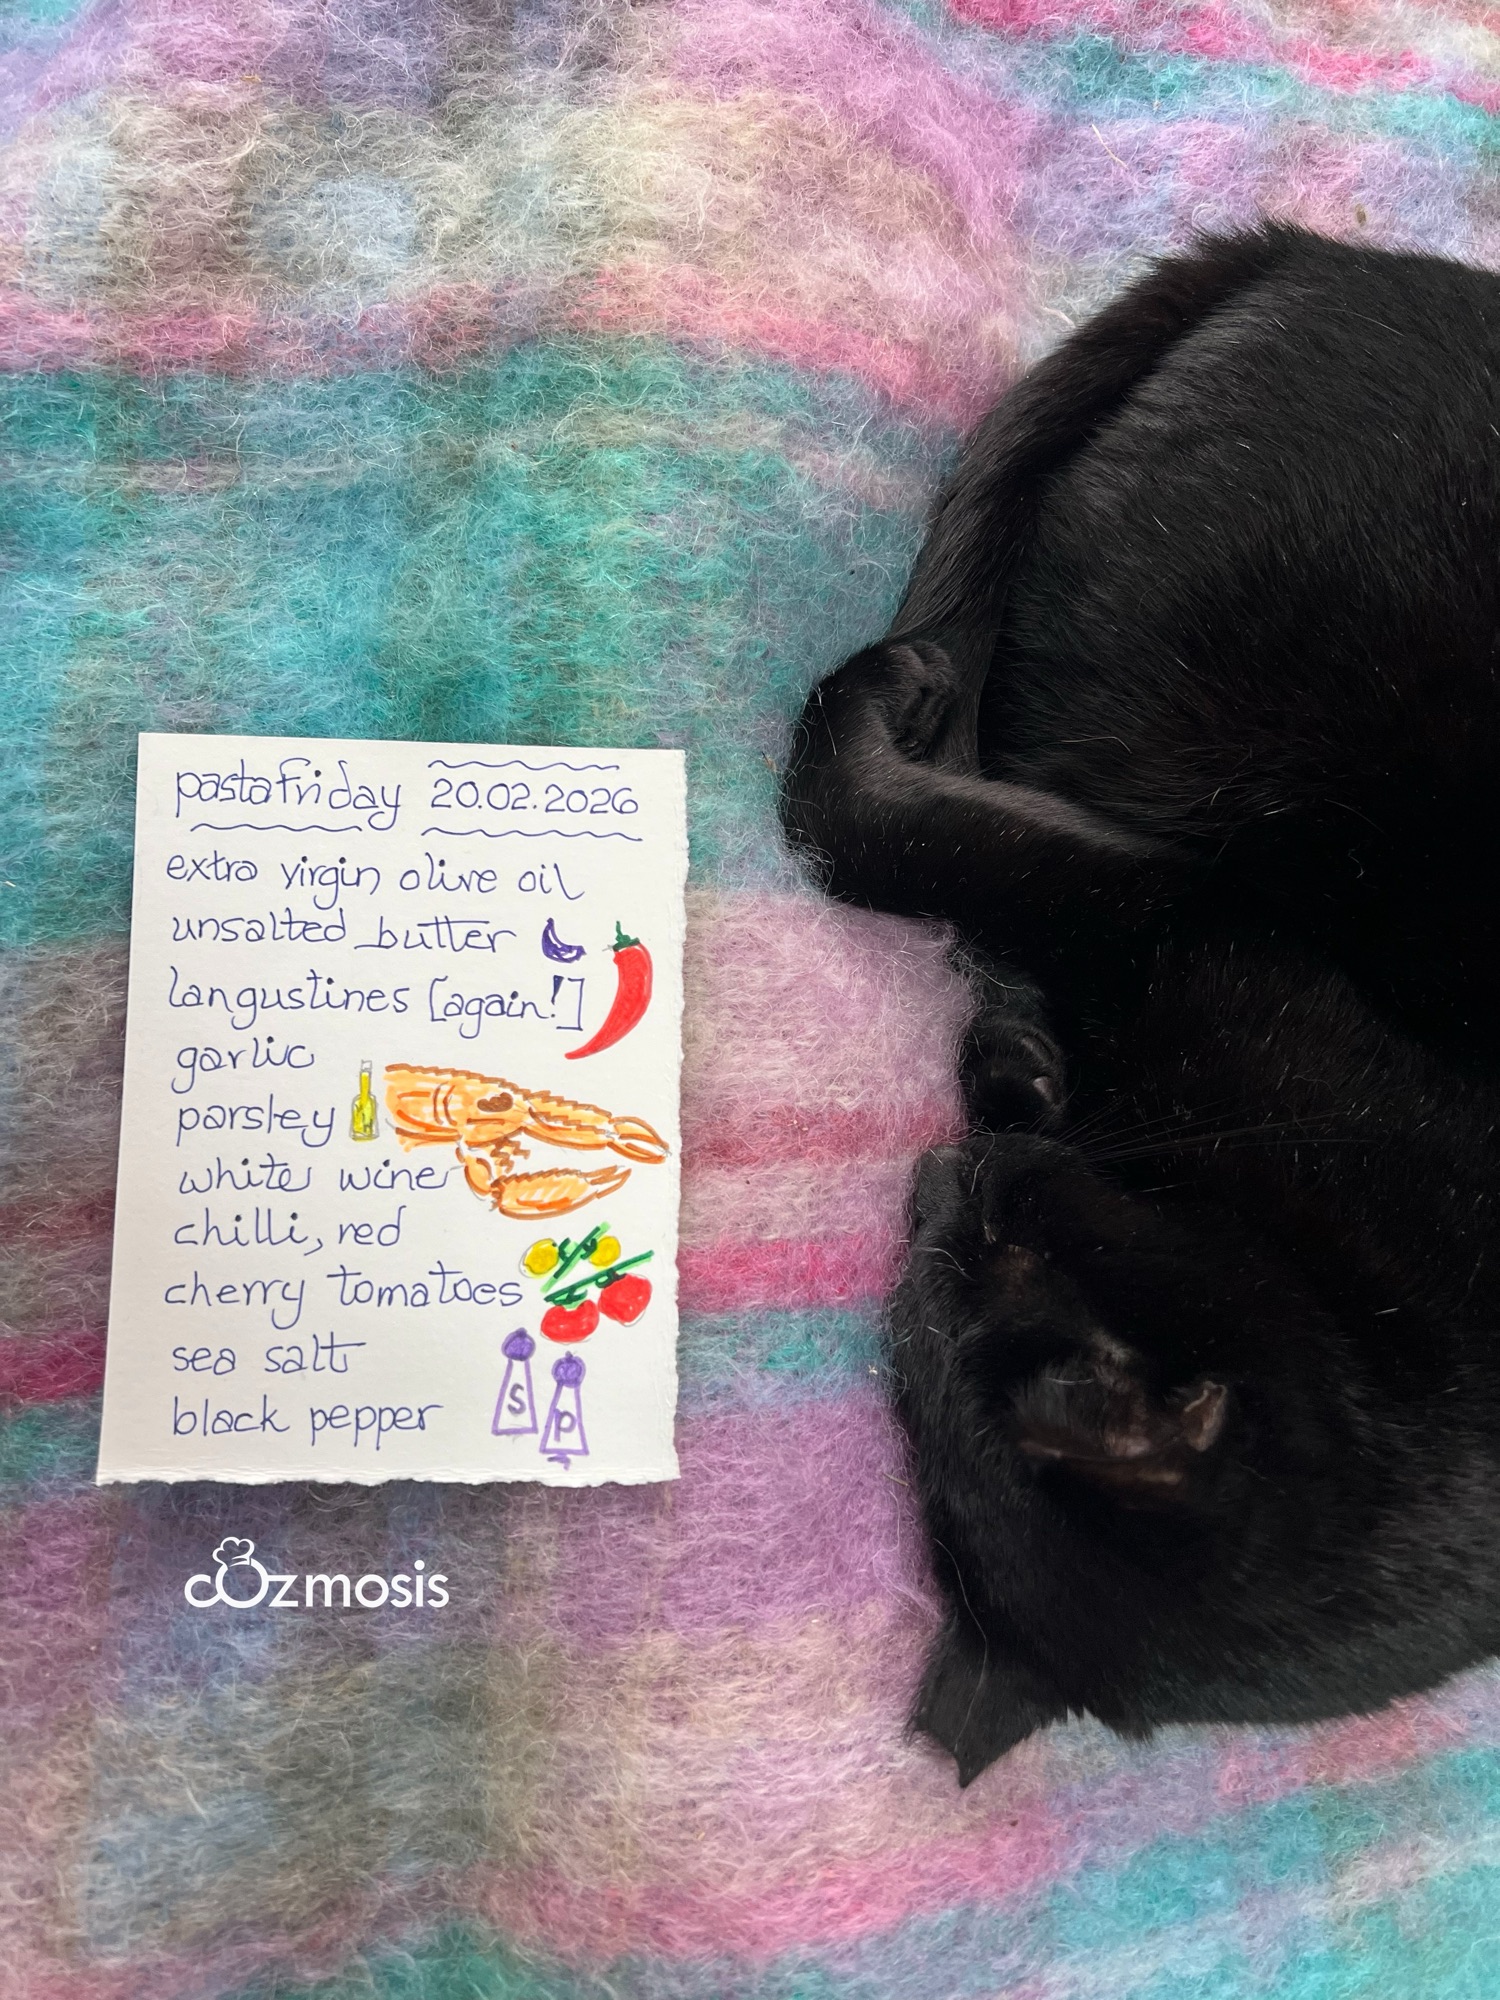 pastafriday 20.02.2026
extra virgin olive oil
unsalted butter
langustines [again!]
garlic
parsley
white wine
chilli, red
cherry tomatoes
sea salt
black pepper
S
p
cOzmosis